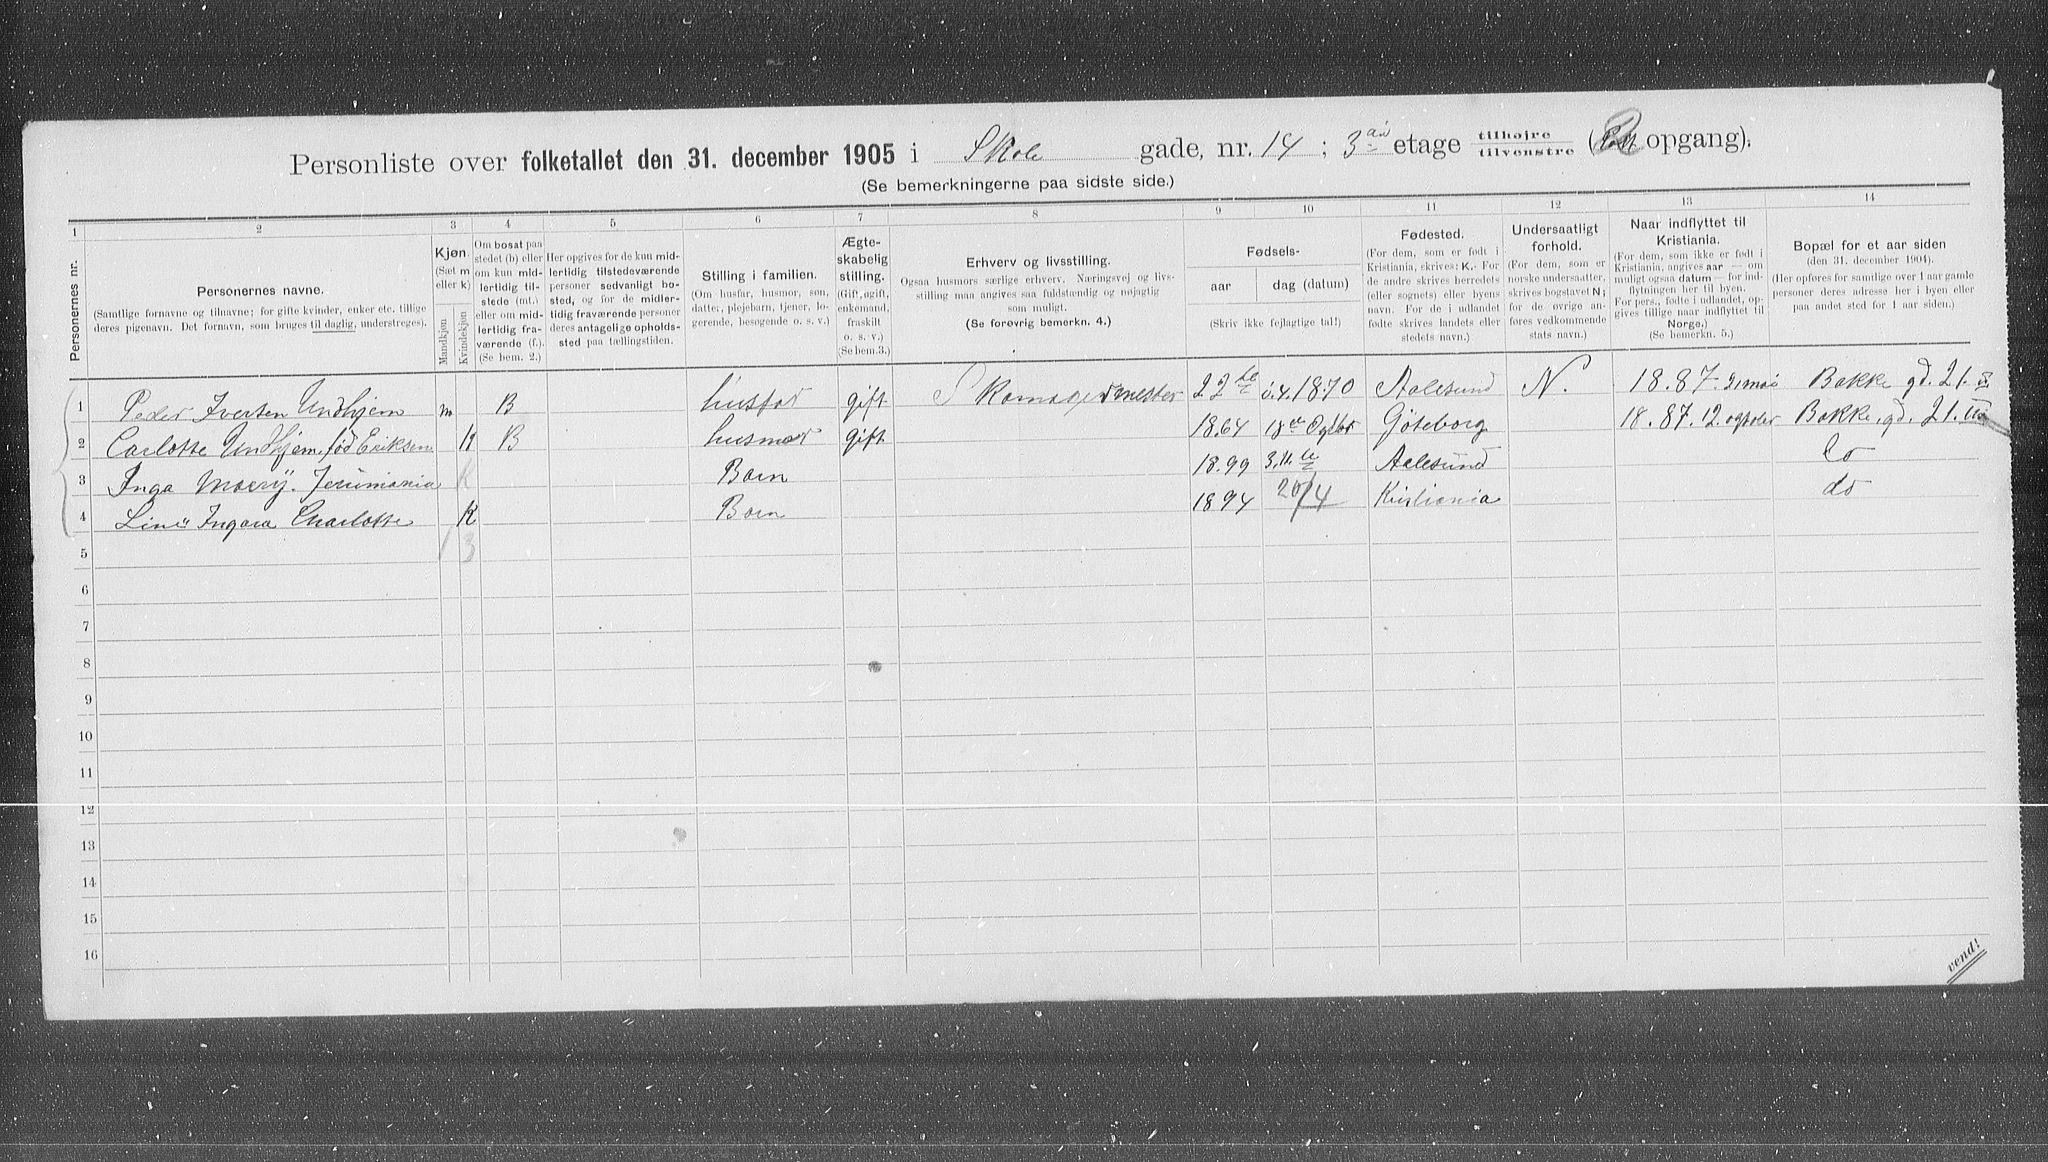 Personliste over folketallet den 31. december 1905 i Skole gade, nr. 14 ; 3 etage tilhøjre tilvenstre ( opgang).
(Se bemerkningerne paa sidste side.)
1 2 3 4 5 6 7 8 9 10 11 12 13 14
Personernes nr.
Personernes navne.
(Samtlige fornavne og tilnavne; for gifte kvinder, enker etc. tillige
deres pigenavn. Det fornavn, som bruges til daglig, understreges).
Kjøn.
(Sæt m
eller k)
Mandkjøn
Kvindekjøn
Om bosat paa
stedet (b) eller
om kun mid-
lertidig til-
stede (mt.)
eller om mid-
lertidig fra-
værende (f.).
(Se bem. 2.)
Her opgives for de kun mid-
lertidig tilstedeværende
personer sedvanligt bo-
sted, og for de midler-
tidig fraværende personer
deres antagelige opholds-
sted paa tællingstiden.
Stilling i familien.
(Om husfar, husmor, søn,
datter, plejebarn, tjener, lo-
gerende, besøgende o. s. v.)
Ægte-
skabelig
stilling.
(Gift, ugift,
enkemand,
fraskilt
o. s. v.)
(Se bem.3.)
Erhverv og livsstilling.
Ogsaa husmors særlige erhverv. Næringsvej og livs-
stilling maa angives saa fuldstændig og nøjagtig
som muligt.
(Se forøvrig bemerkn. 4.)
Fødsels-
aar dag (datum)
(Skriv ikke fejlagtige tal!)
Fødested.
(For dem, som er født i
Kristiania, skrives: K. For
de andre skrives herredets
(eller sognets) eller byens
navn. For de i udlandet
fødte skrives landets eller
stedets navn.)
Undersaatligt
forhold.
(For dem, som er
norske undersaatter,
skrives bogstavet N;
for de øvrige an-
føres vedkommende
stats navn.)
Naar indflyttet til
Kristiania.
(For pers., som ikke er født i
Kristiania, angives aar — om
muligt ogsaa datum — for ind-
flytningen her til byen.
For pers., fødte i udlandet, op-
gives tillige naar indflyttet til
Norge.)
(Se bemerkn. 5.)
Bopæl for et aar siden
(den 31. december 1904).
(Her opføres for samtlige over 1 aar gamle
personer deres adresse her i byen eller
paa andet sted for 1 aar siden.)
1 Peder Iversen Undhjem m B husfar gift Skomagermester 22 de 4. 1870 Aalesund N. 18.87. 21 mai Bakke gd. 21. II
2 Carlotte Undhjem, fød Eriksen K B husmor gift 1864 18 Göteborg 18.87. 12. Bakke. gd. 21. III
3 Inga K Barn 1899 3.11. Aalesund Do
4 Line Ingara Charlotte K Barn 1894 20/4 Kristiania do
5 1 3
6
7
8
9
10
11
12
13
14
15
16
vend!